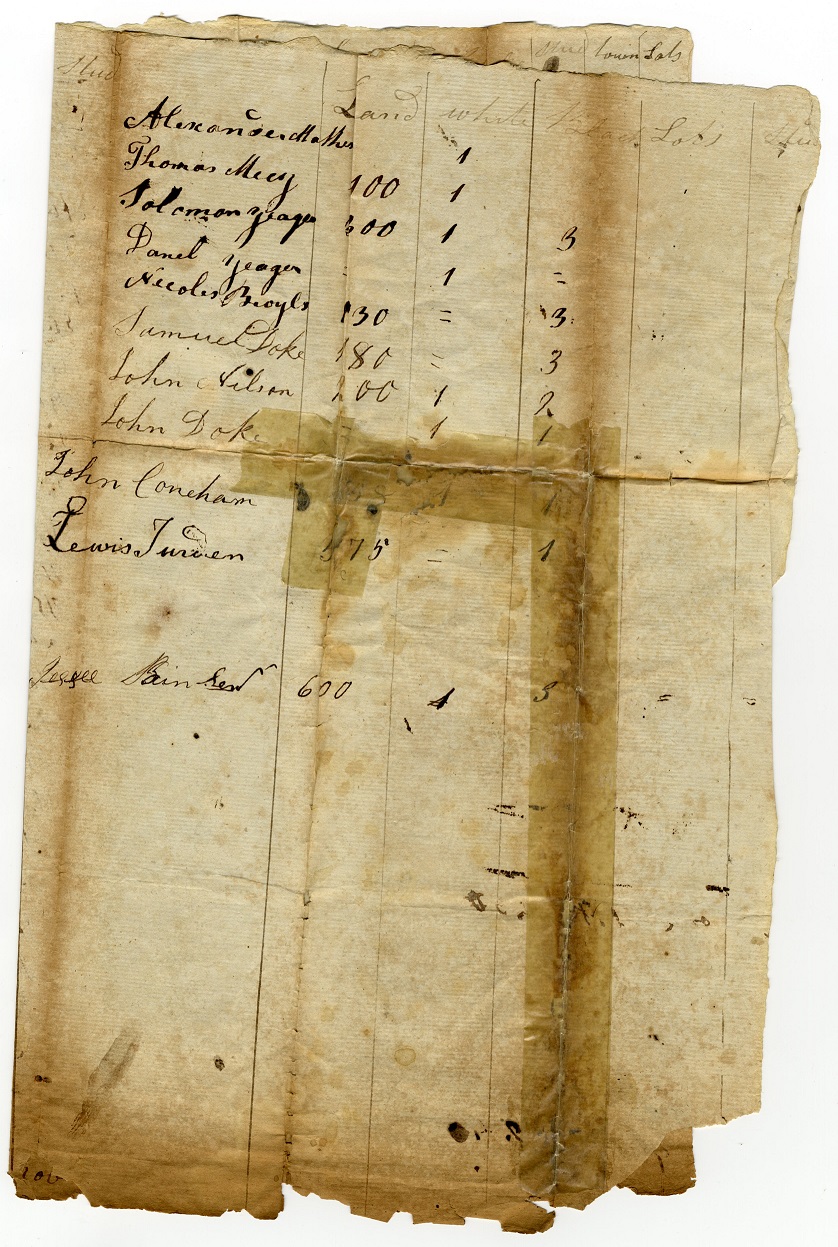 town Lots
Stud Land white Black Lots Stud
Alexander Mathes 1
Thomas Mccy 100 1
Solomon Yeager 300 1 3
Danel Yeager = 1 =
Niccoles Broyls 130 = 3
Samuel Doke 180 = 3
John Nilson 200 1 2
John Doke = 1 1
John Coneham 1 1
Lewis Jurden 575 = 1
600 1 3 = =